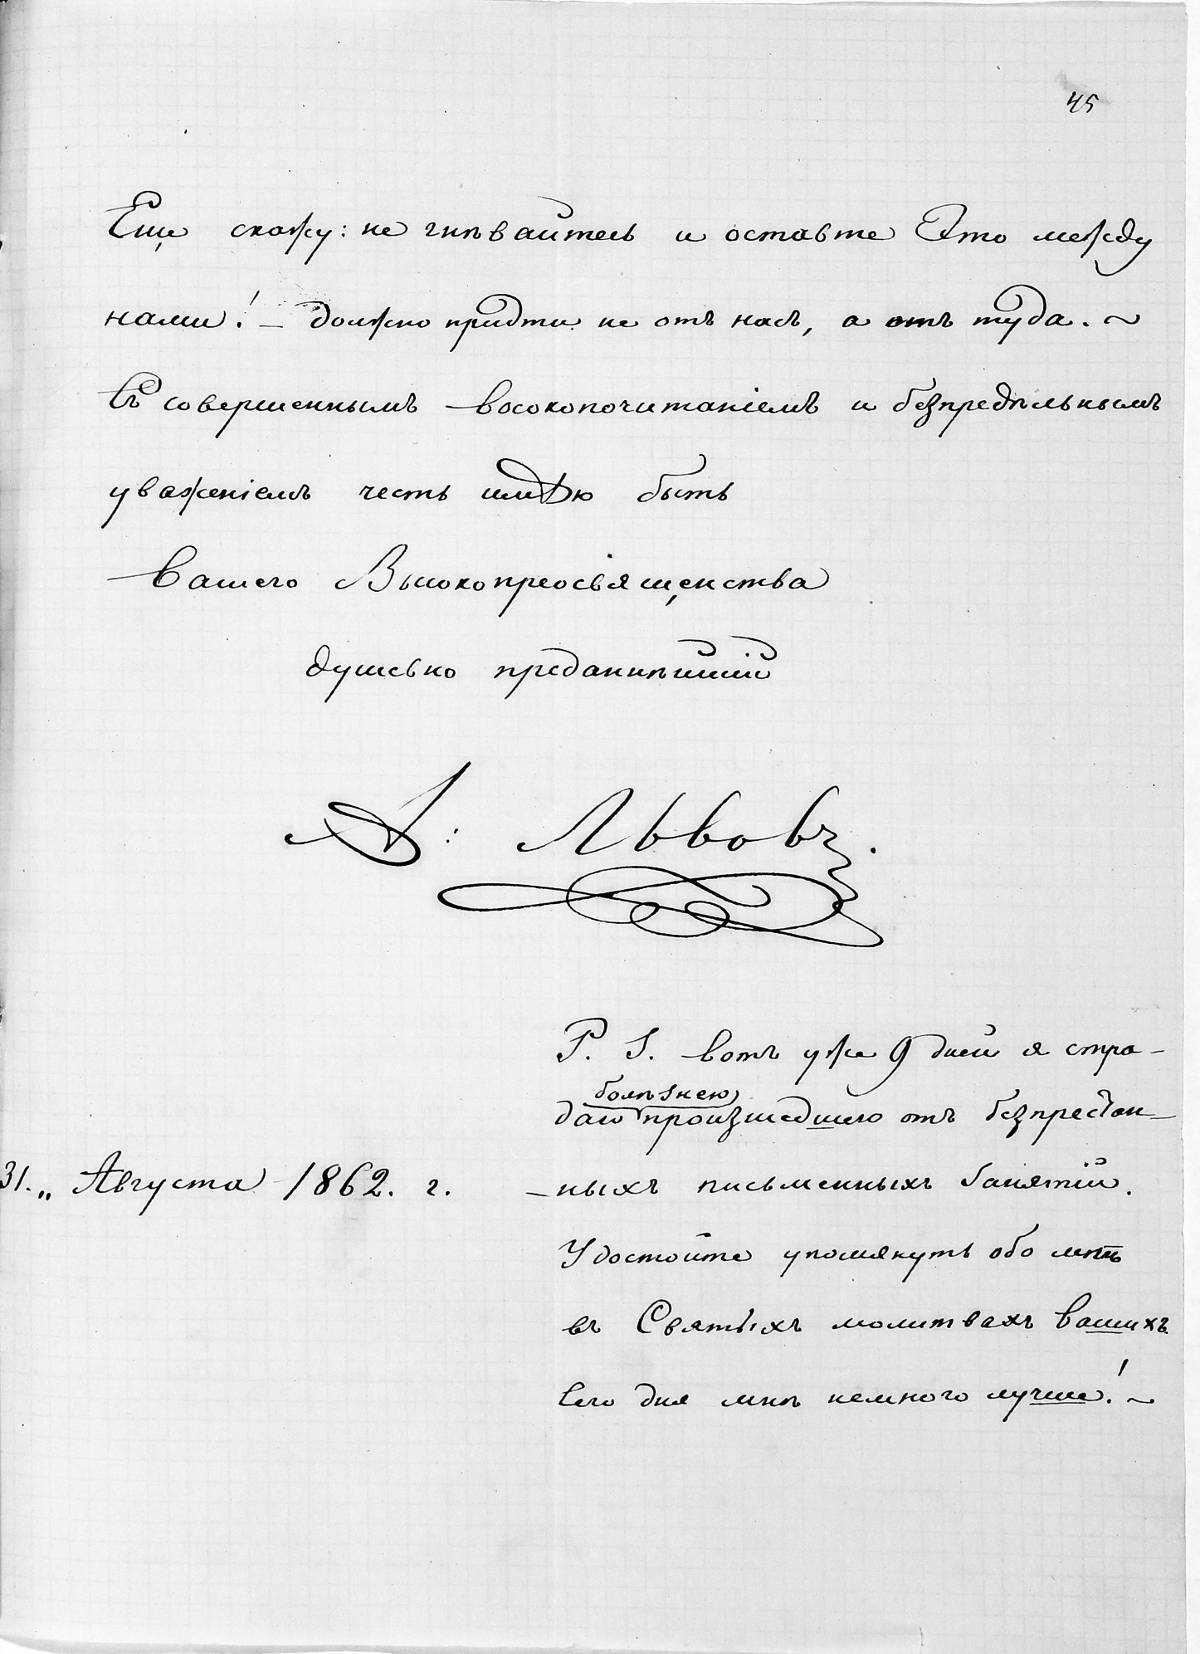 45
Еще скажу: не гнѣвайтесь и оставте Это между
нами! — должно придти не отъ насъ, а отъ туда. ~
Съ совершеннымъ восокопочитаніемъ и безпредѣльнымъ
уваженіемъ честь имѣю быть
Вашего Высокопреосвященства
душевно преданнѣйшій
А: Львовъ.
P. S. вотъ уже 9 дней я стра-
болѣзнею
даю произшедшею отъ безпрестан-
31. „ Августа 1862. г.
-ныхъ письменныхъ занятій.
Удостойте упомянуть обо мнѣ
въ Святыхъ молитвахъ вашихъ
Сего дня мнѣ немного лучше! ~